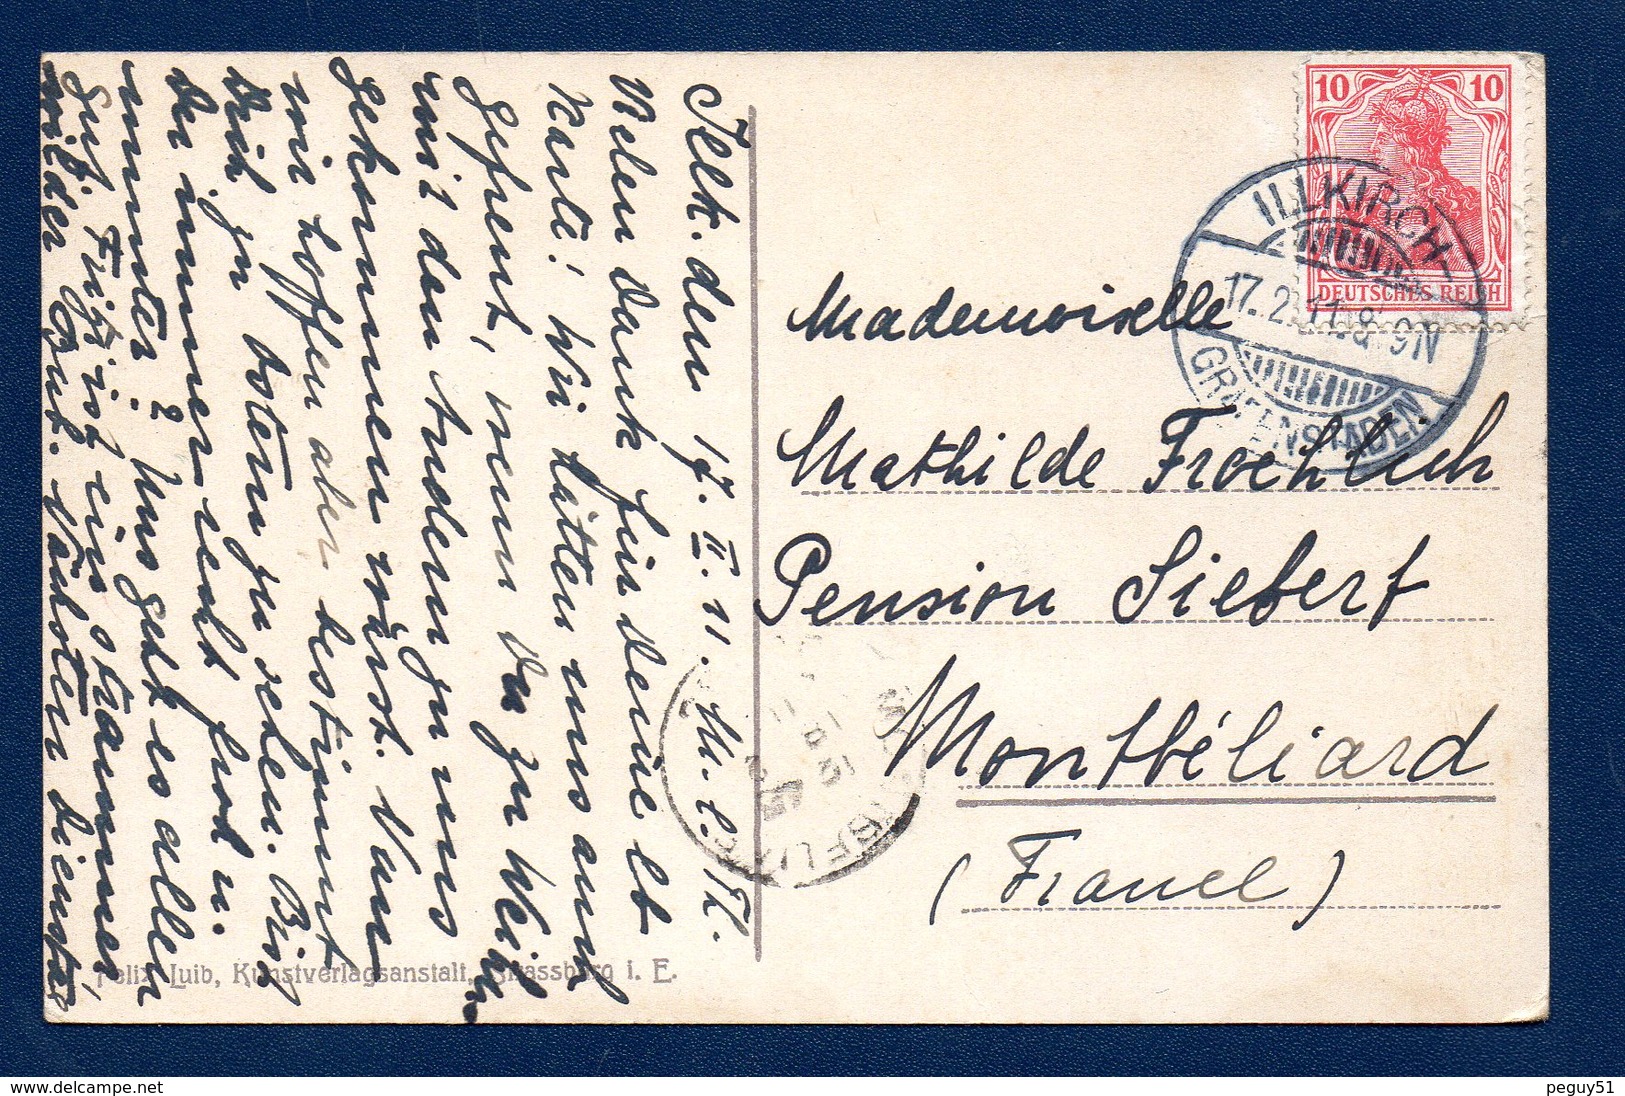 Illk. den 17. II. 11.
Vielen Dank für Deine lb
Karte! Wir hätten uns auch
gefreut, wenn Du zu Weihn.
mit den Andern zu uns
gekommen wärst. Nun
wir hoffen aber bestimmt
Dich zu Ostern zu sehen. Bist
Du immer recht froh u.
munter? Uns geht es allen
gut. Fritz ist ein strammer
wilder Bub. Nächsten Dienstag
Felix Luib, Kunstverlagsanstalt, Strassburg i. E.
10 10
DEUTSCHES REICH
ILLKIRCH-
17.2.11. 8-9N
GRAFENSTADEN
Mademoiselle
Mathilde Froehlich
Pension Siebert
Montbéliard
(France)
peguy51